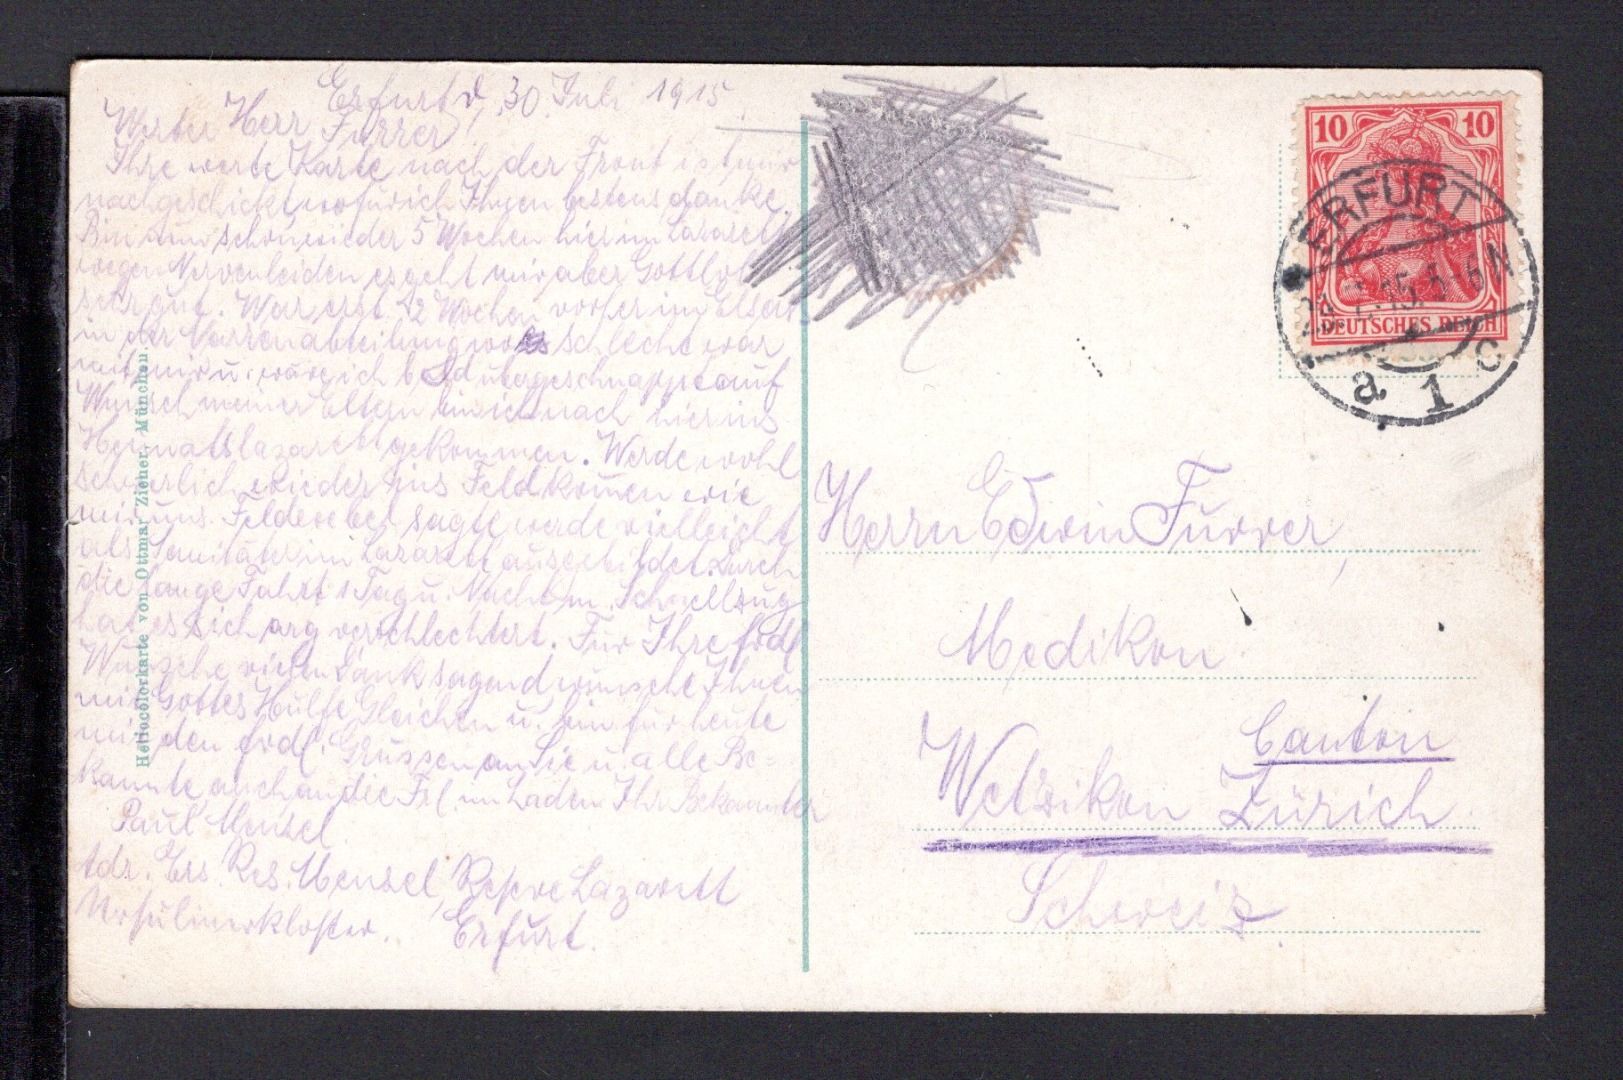 Erfurt d. 30. Juli 1915
Werter Herr Furrer!
Ihre werte Karte nach der Front ist mir
nachgeschickt wofür ich Ihnen bestens danke.
Bin nun schon wieder 5 Wochen hier im Lazarett
wegen Nervenleiden es geht mir aber Gottlob
sehr gut. War erst 2 Wochen vorher im Elsas
in der abteilung wo es schlecht war
mit mir u. wäre ich bald übergeschnappt auf
Wunsch meiner Eltern bin ich nach hier ins
Heimatslazarett gekommen. Werde wohl
schwerlich wieder ins Feld komen wie
mir uns. Feldwebel sagte werde vielleicht
als Sanitäter im Lazarett ausgebildet. Durch
die lange Fahrt 1 Tag u. Nacht m. Schnellzug
hat es sich arg verschlechtert. Für Ihre frdl
Wünsche vielen Dank sagend wünsche Ihnen
mit Gottes Hülfe Gleichen u. bin für heute
mit den frdl. Grüssen an Sie u. alle Be=
kannte auch an die Frl. im Laden Ihr Bekannter
Paul Mensel
Adr. Ers. Res. Mensel, Reserve Lazarett
Ursulinerkloster. Erfurt.
Heliocolorkarte von Ottmar Zieher, München
10 10
DEUTSCHES REICH
ERFURT
15. 5-6 N
a 1 c
Herrn Edwin Furrer,
Medikon
Wetzikon Canton
Zürich
Schweiz.